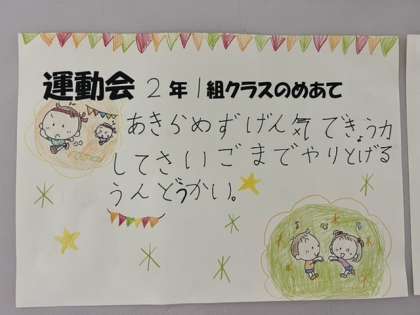 運動会 2年1組クラスのめあて
あきらめずげん気できょう力
してさいごまでやりとげる
うんどうかい。